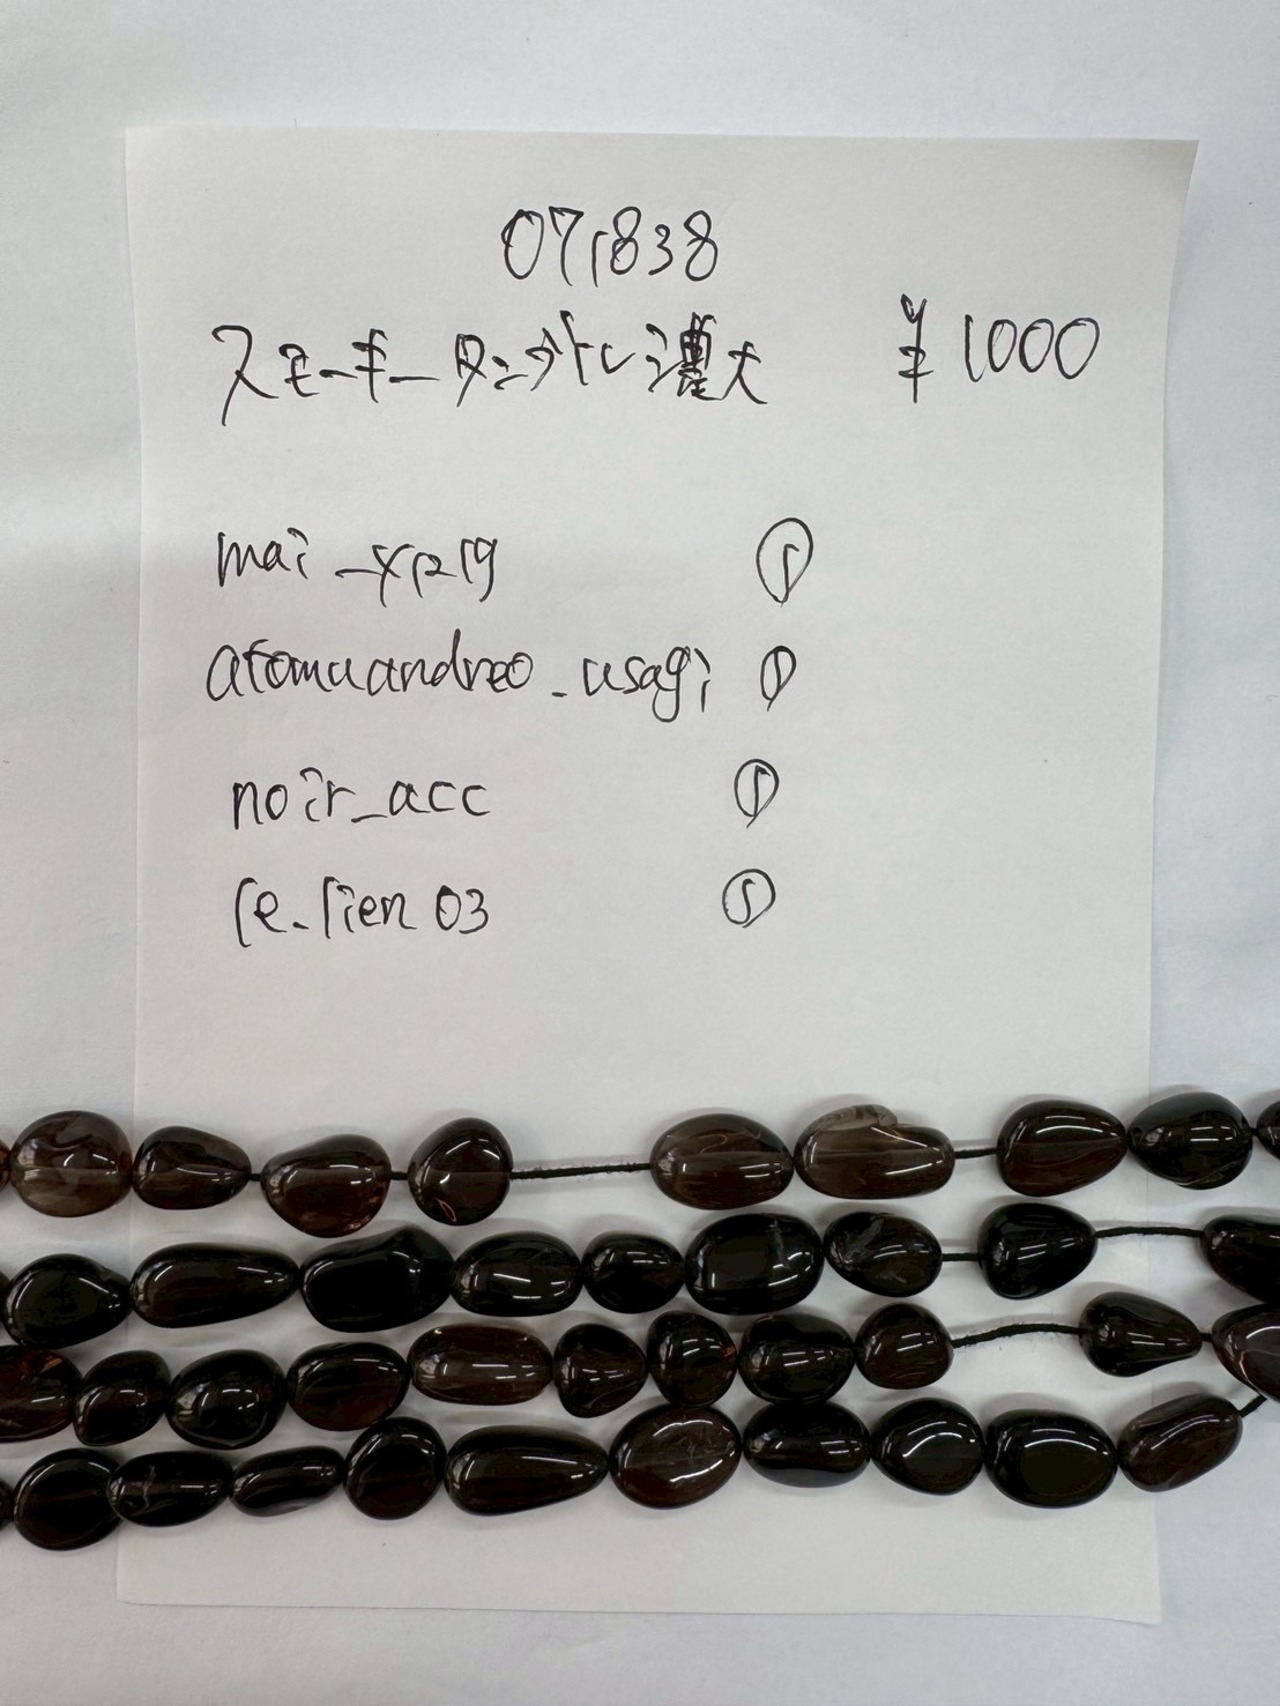 071838
スモーキータンブル濃大 ¥1000
mai_xp19 ①
atomuandreo_usagi ①
noir_acc ①
le.lien03 ①